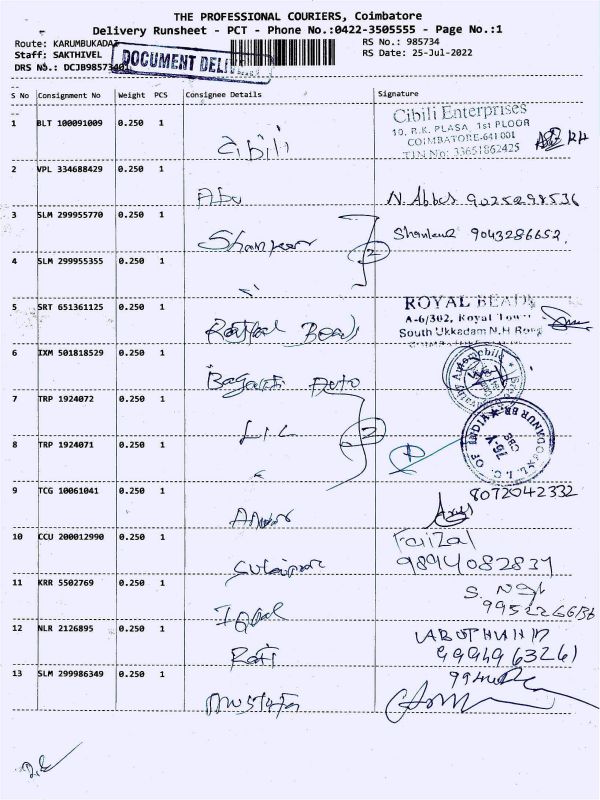 THE PROFESSIONAL COURIERS, Coimbatore
Delivery Runsheet - PCT - Phone No.:0422-3505555 - Page No.:1
Route: KARUMBUKADAI
RS No.: 985734
Staff: SAKTHIVEL
RS Date: 25-Jul-2022
DRS No.: DCJB9857340
DOCUMENT DELI
S No Consignment No Weight PCS Consignee Details Signature
1 BLT 100091009 0.250 1 Cibili
Cibili Enterprises
10, R.K. PLASA, 1st FLOOR
COIMBATORE-641 001
TIN No: 33651862425
2 VPL 334688429 0.250 1 Abu N. Abbas 9025298536
3 SLM 299955770 0.250 1 Shankar 9043286652
4 SLM 299955355 0.250 1 2
5 SRT 651361125 0.250 1 Royal Beads
ROYAL BEADS
A-6/302, Royal Tow
South Ukkadam N.H Road
6 IXM 501818529 0.250 1 Auto
Automobile
7 TRP 1924072 0.250 1 LIC
8 TRP 1924071 0.250 1 2
L.I.C. OF INDIA
CBE
9 TCG 10061041 0.250 1 8072042332
10 CCU 200012990 0.250 1 Faizal
9894082837
11 KRR 5502769 0.250 1 Iqbal
12 NLR 2126895 0.250 1 Rafi
9994963261
13 SLM 299986349 0.250 1 Mustafa